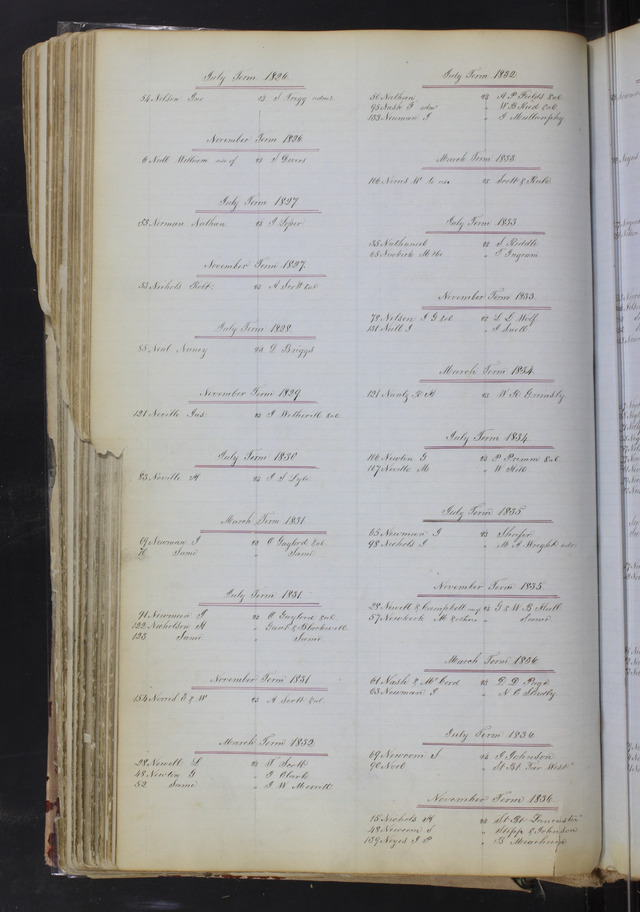 July Term 1826
54 Nelson vs S Gregg admr
November Term 1826
6 Null William use of vs S Devers
July Term 1827
53 Norman Nathan vs P Lober
November Term 1827
53 Nichols Robt: vs A Scott &al
July Term 1828
85 Neal Nancy vs D Briggs
November Term 1829
121 Neville Jas vs J Wetherill &al
July Term 1830
83 Neville H vs J S Lyle
March Term 1831
69 Newman J vs C Gaylord &al
70 Same " Same
July Term 1831
91 Newman J vs C Gaylord &al
122 Nicholson H " Blackwell
135 Same " Same
November Term 1831
154 Norris E & W vs A Scott &al
March Term 1832
28 Newell L vs J Scott
48 Newlin G " J Clark
52 Same " J W Merrill
July Term 1832
50 Nathan vs A P Fields &al
95 Nash T admr " W B Reed &al
153 Newman J " J Mullowphy
March Term 1833
106 Norris W to use vs Scott & Rule
July Term 1833
35 Nathaniel vs S Riddle
65 Newbick " T Ingram
November Term 1833
79 Nelson J G &al vs L L Wolf
131 Neill J " J Snell
March Term 1834
121 Nantz R H vs W R Grimsby
July Term 1834
106 Newlin G vs P Primm &al
107 Neville M " W Hill
July Term 1835
65 Newman J vs Shafer
98 Nichols J " M A Wright
November Term 1835
28 Newell & Campbell vs G & W B Hull
57 Newbeck M & others " Same
March Term 1836
61 Nash & McCord vs D D Page
63 Newman J " N C
July Term 1836
69 Newcom S vs J Johnson
90 Noel " St Bt Far West
November Term 1836
15 Nichols H vs St Bt Lancaster
48 Newcom S " Stipp & Johnson
159 Noyes J P " B